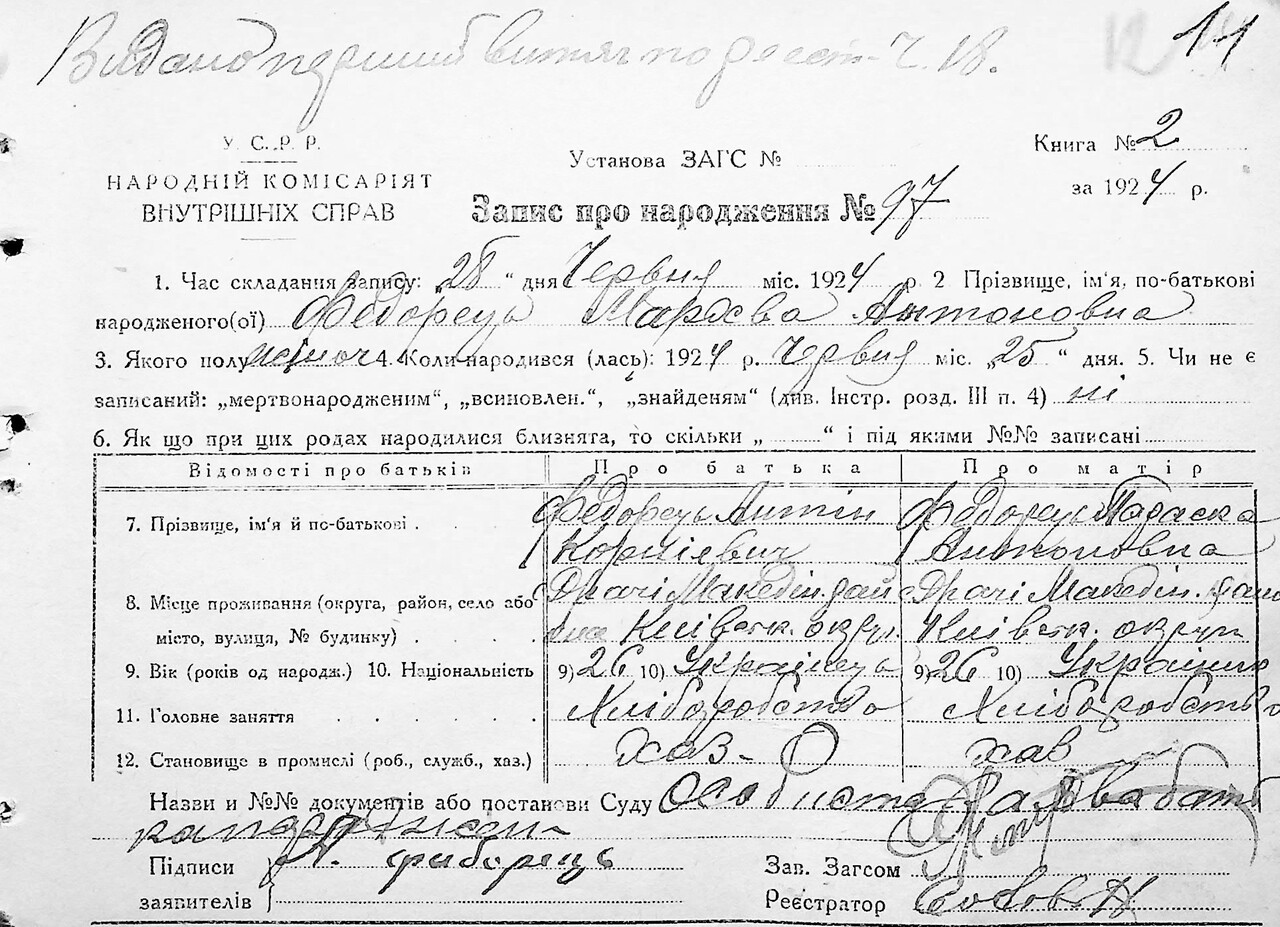 Видано перший витяг по реєст. Ч. 18.
12 11
У. С. Р. Р.
НАРОДНІЙ КОМІСАРІЯТ
ВНУТРІШНІХ СПРАВ
Установа ЗАГС №
Книга № 2
за 1924 р.
Запис про народження № 97
1. Час складання запису: „28" дня Червня міс. 1924 р. 2 Прізвище, ім'я, по-батькові
народженого(ої) Федорець Антоновна
3. Якого полу жіноч 4. Коли народився (лась): 1924 р. Червня міс. „25" дня. 5. Чи не є
записаний: „мертвонародженим", „всиновлен.", „знайденям" (див. Інстр. розд. III п. 4) ні
6. Як що при цих родах народилися близнята, то скільки „ " і під якими №№ записані
Відомості про батьків Про батька Про матір
7. Прізвище, ім'я й по-батькові Федорець Антін Федорець Параска
Корнієвич Антоновна
8. Місце проживання (округа, район, село або Драчі Македін. рай Драчі Македін.
місто, вулиця, № будинку) Київськ. округ. Київськ. округи
9. Вік (років од народж.) 10. Національність 9) 26 10) Українець 9) 26 10) Українка
11. Головне заняття Хліборобство Хліборобство
12. Становище в промислі (роб., служб., хаз.) хаз. хаз
Назви и №№ документів або постанови Суду Особиста
Підписи А. Федорець
заявителів
Зав. Загсом
Реєстратор